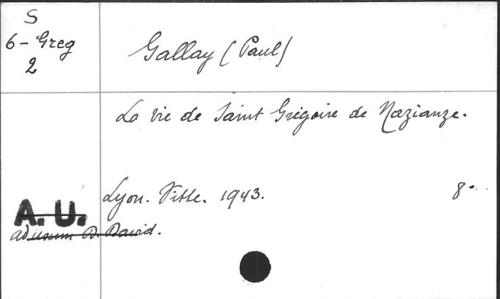 S
6-Greg
2
Gallay (Paul)
La vie de Saint Grégoire de Nazianze.
Lyon. Vitte. 1943. 8°.
A. U.
ad usum D. David.